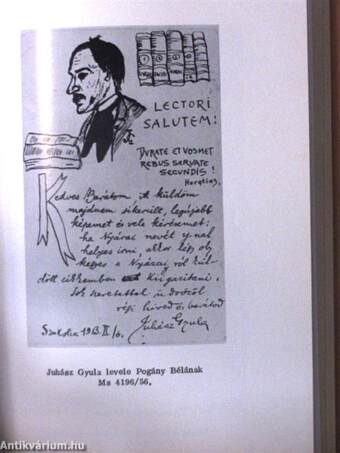 LECTORI
SALUTEM!
DURATE ET VOSMET
REBUS SERVATE
SECUNDIS!
Horatius.
Kedves Barátom, itt küldöm
majdnem sikerült, legújabb
képemet és vele kérésemet:
ha Nyárai nevét y-nal
helyes írni akkor légy oly
kegyes a Nyárai ról kül-
dött cikkemben kiigazítani.
Sok szeretettel üdvözöl
régi híved és barátod
Szakolca 1913. II/6. Juhász Gyula
Juhász Gyula levele Pogány Bélának
Ms 4196/56.
Antikvárium.hu